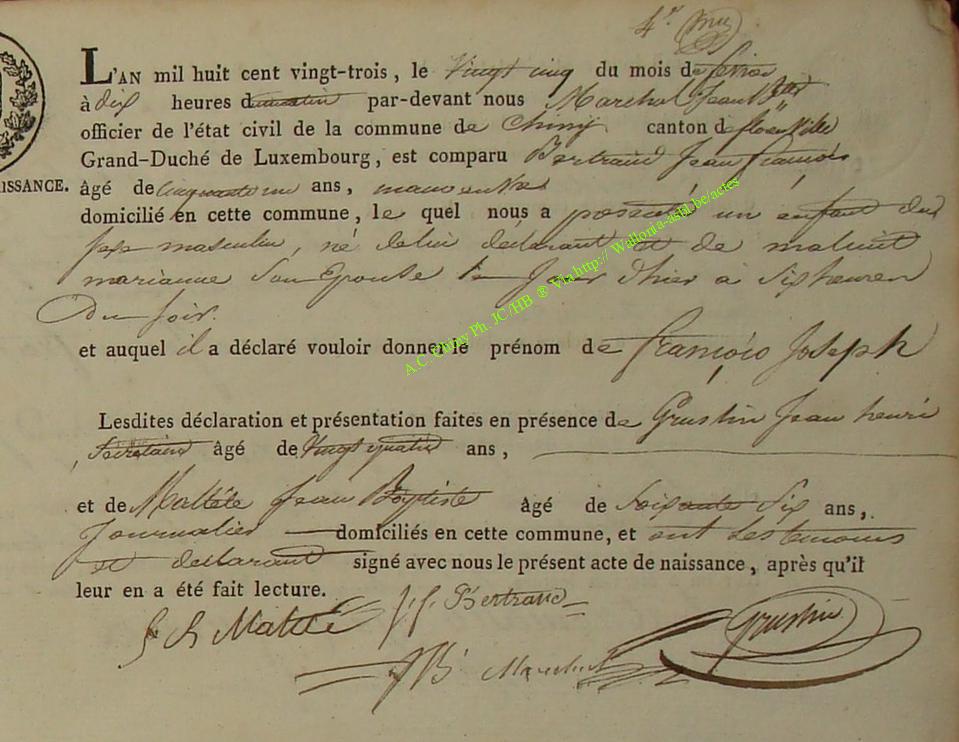 4e
L'AN mil huit cent vingt-trois, le vingt cinq du mois de fevrier
à dix heures du matin par-devant nous Marchal Jean Bte
officier de l'état civil de la commune de Chiny canton de florenville
Grand-Duché de Luxembourg, est comparu Bertrand Jean françois
ISSANCE. âgé de cinquante un ans, manoeuvre
domicilié en cette commune, le quel nous a presenté un enfant du
sexe masculin, né de lui déclarant et de
marianne son Epouse le jour d'hier à six heures
Du soir.
et auquel il a déclaré vouloir donner le prénom de françois Joseph
Lesdites déclaration et présentation faites en présence de Grustin Jean henri
Secrétaire âgé de vingt quatre ans,
et de Jean Baptiste âgé de soixante six ans,
Journalier domiciliés en cette commune, et ont les temoins
et declarant signé avec nous le présent acte de naissance, après qu'il
leur en a été fait lecture.
J.f. Bertrand
Grustin
JB Marchal
A.C. Chiny Ph. JC/HB ® Via http:// Wallonia-asbl.be/actes